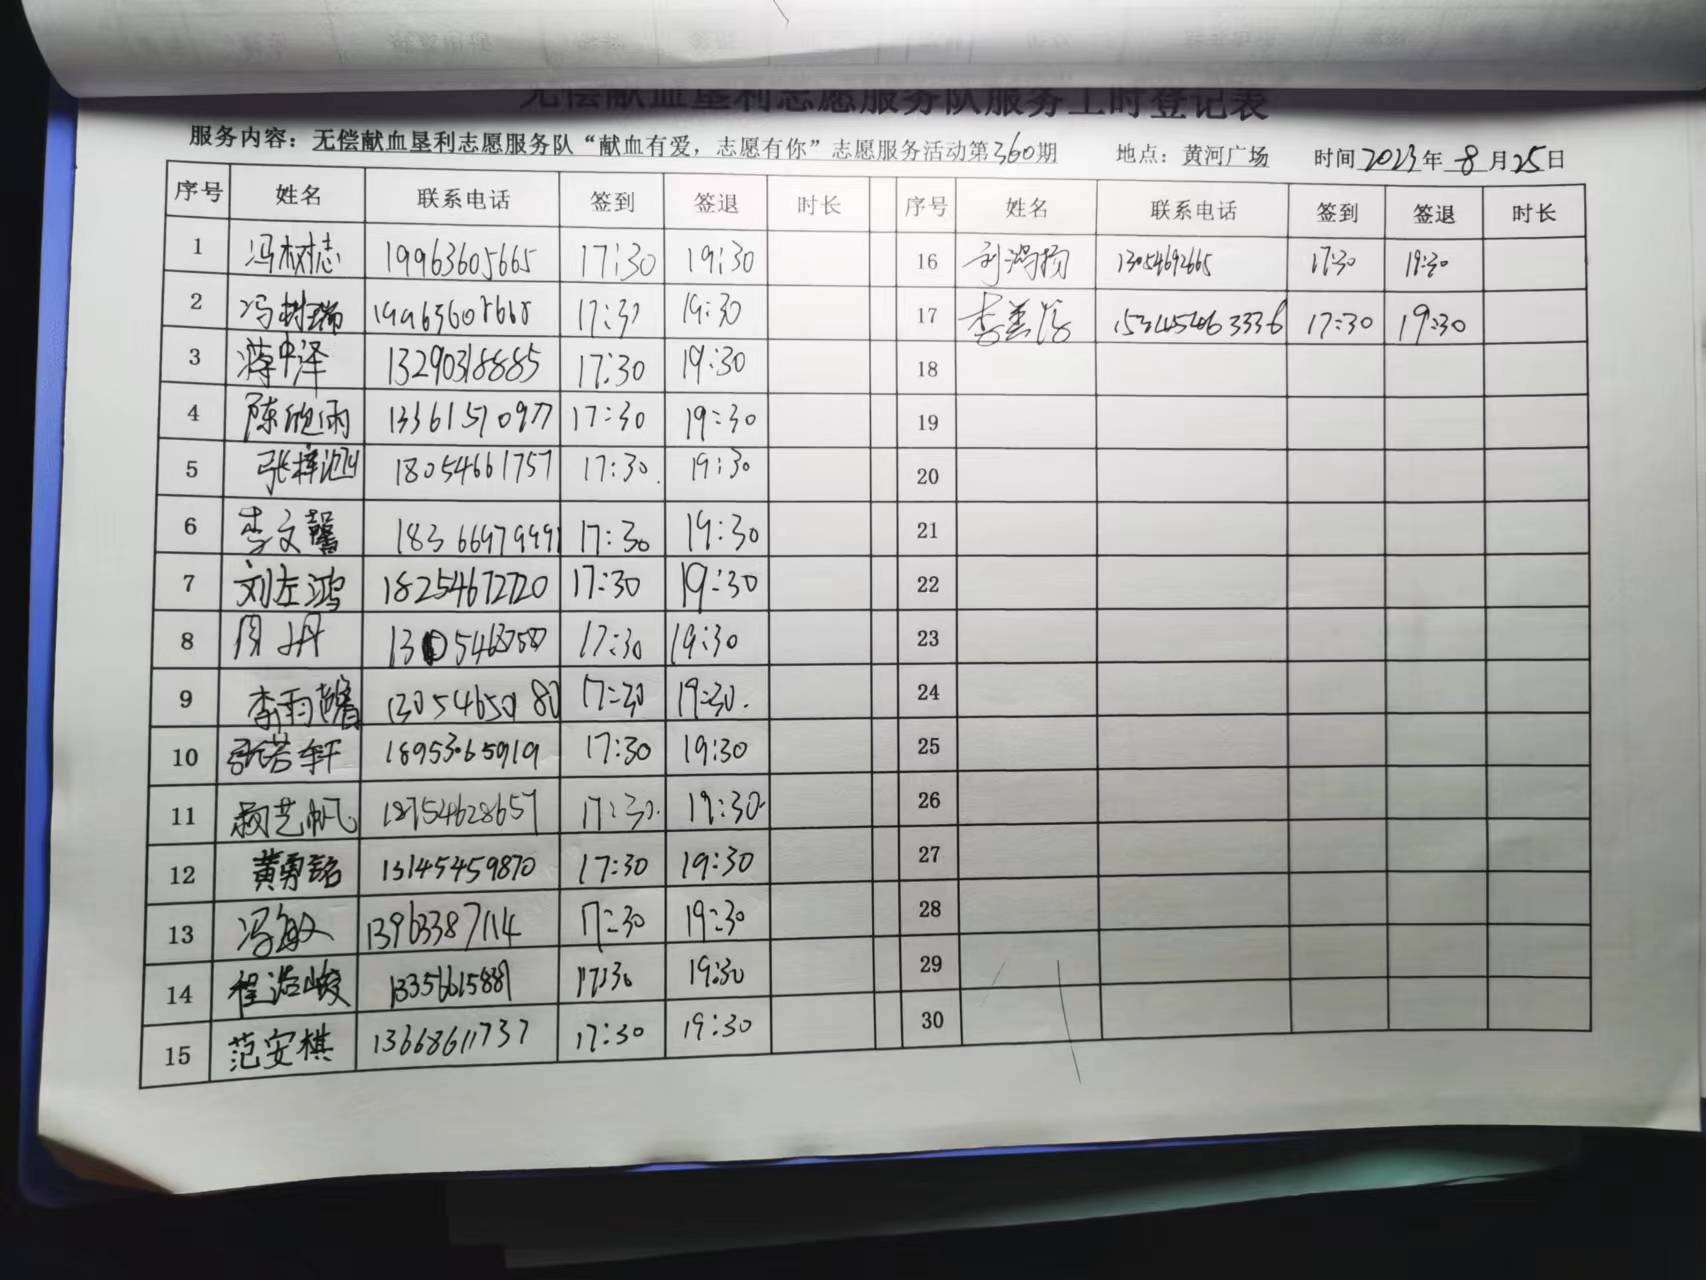 无偿献血垦利志愿服务队服务工时登记表
服务内容：无偿献血垦利志愿服务队“献血有爱，志愿有你”志愿服务活动第360期 地点：黄河广场 时间2023年8月25日
序号 姓名 联系电话 签到 签退 时长 序号 姓名 联系电话 签到 签退 时长
1 冯树志 19963605665 17:30 19:30 16 刘鸿扬 13054692665 17:30 19:30
2 冯树瑞 19963605665 17:30 19:30 17 李 15345463336 17:30 19:30
3 蒋中泽 13290318885 17:30 19:30 18
4 陈雨 13361510977 17:30 19:30 19
5 张梓 18054661757 17:30 19:30 20
6 李文馨 18366979991 17:30 19:30 21
7 刘左鸿 18254672720 17:30 19:30 22
8 周丹 17:30 19:30 23
9 李雨 13054650180 17:30 19:30 24
10 张若轩 18953065919 17:30 19:30 25
11 顾艺帆 18754628657 17:30 19:30 26
12 黄勇铭 13145459870 17:30 19:30 27
13 冯敏 13963387114 17:30 19:30 28
14 程浩峻 13356615889 17:30 19:30 29
15 范安棋 13668611737 17:30 19:30 30